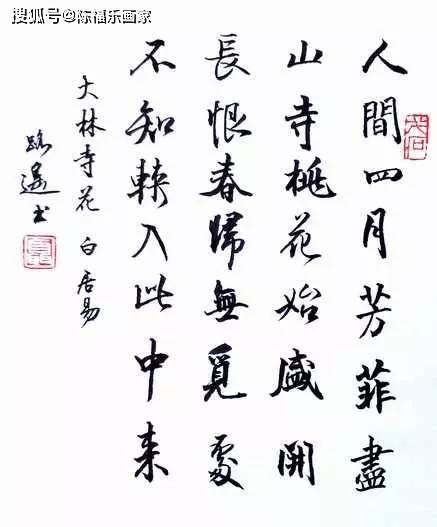 搜狐号@陈福乐画家
人間四月芳菲盡
山寺桃花始盛開
長恨春歸無覓處
不知轉入此中来
大林寺花 白居易
路遥书